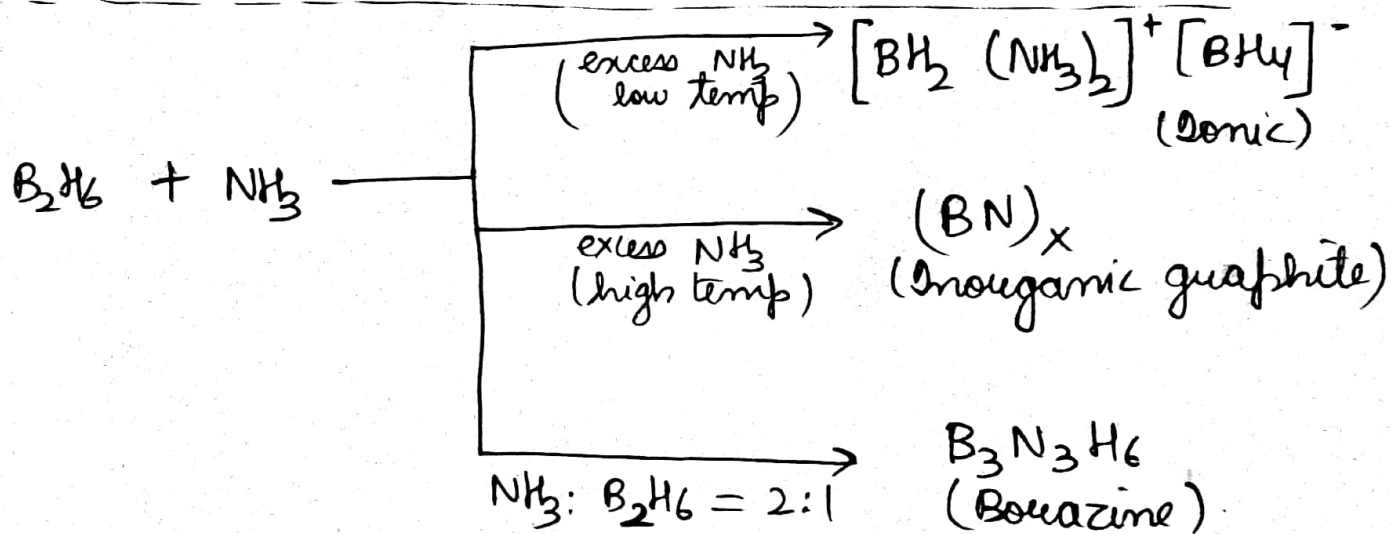 (excess NH3 low temp) [BH2 (NH3)2]+ [BH4]-
(Ionic)
B2H6 + NH3
excess NH3 (high temp) (BN)x
(Inorganic graphite)
NH3: B2H6 = 2:1 B3N3H6
(Borazine)